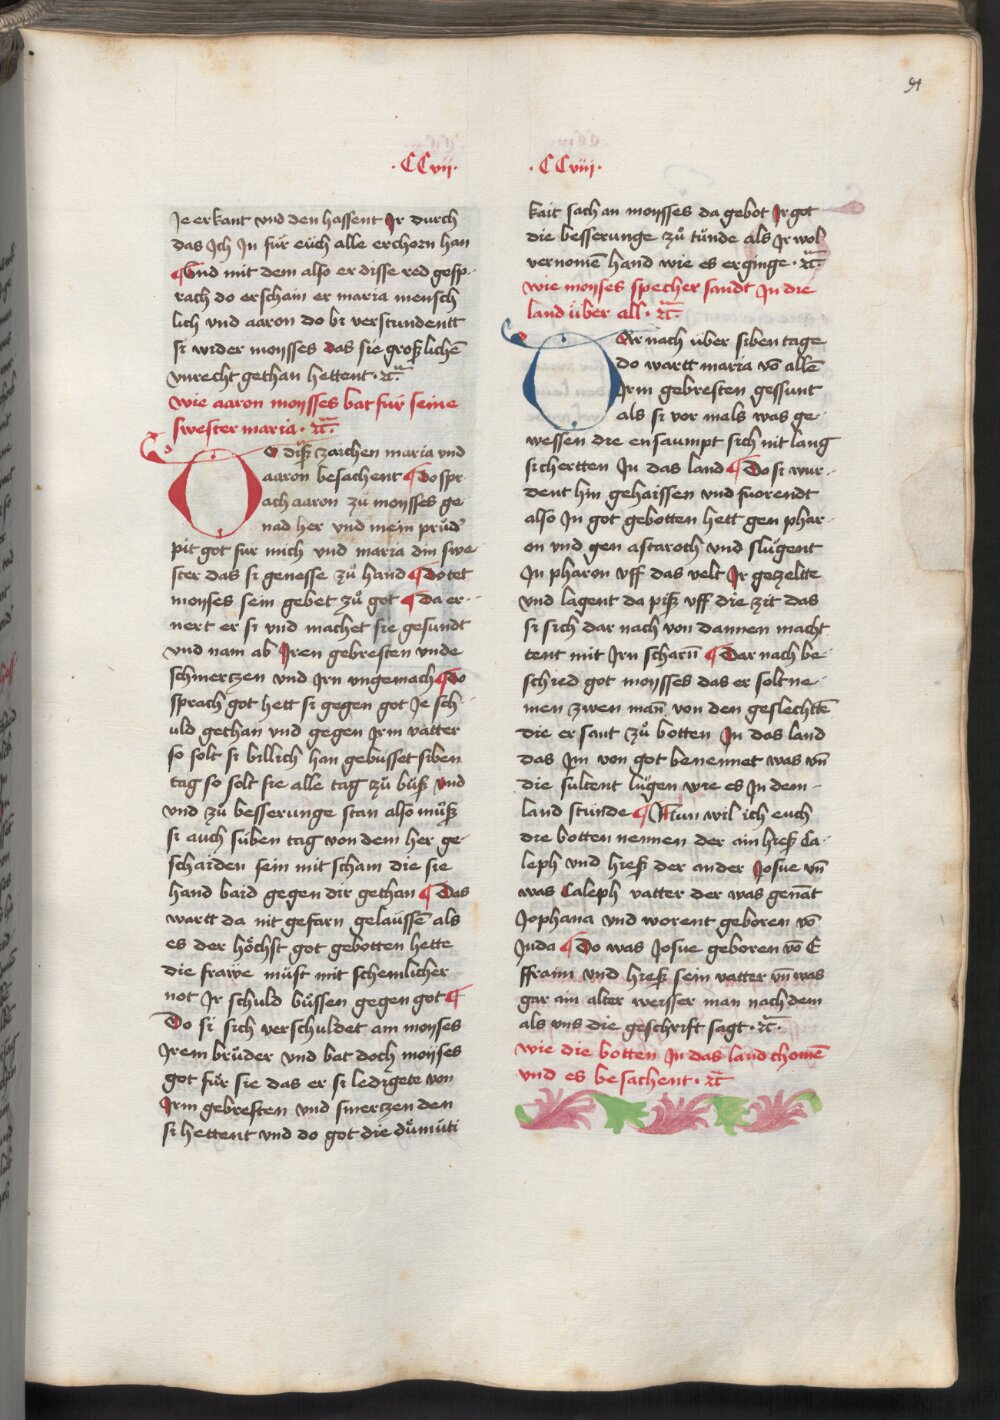 91
·CCvii·
Je erkant vnd den hassent Jr durch
das Jch Jn für eüch alle erchorn han
Vnd mit dem also er disse red gesp-
rach do erschain er maria mensch
lich vnd aaron do bi verstundentt
si wider moysses das sie großlichē
vnrecht gethan hettent · ꝛc̄
wie aaron moysses bat für seine
swester maria · ꝛc̄
DO diß zaichen maria vnd
aaron besachent Do spr-
ach aaron zů moysses ge
nad her vnd mein průd'
pit got für mich vnd maria din swe
ster das si genesse zů hand Do tet
moyses sein gebet zů got Da er-
nert er si vnd machet sie gesundt
vnd nam ab Jren gebresten vnde
schmertzen vnd Jrn vngemach Do
sprach got hett si gegen got Je sch-
uld gethan vnd gegen Jrm vatter
so solt si billich han gebüsset siben
tag so solt sie alle tag zů bůß vnd
vnd zů besserunge stan also můß
si auch süben tag von dem her ge-
schaiden sein mit scham die sie
hand baid gegen dir gethan Das
wartt da nit gefarn gelaussē als
es der höchst got gebotten hette
die frawe můst mit schemlicher
not Jr schuld bůssen gegen got
Do si sich verschuldet am moyses
Jrem brůder vnd bat doch moyses
got für sie das er si ledigete von
Jrm gebresten vnd smertzen den
si hettent vnd do got die důmüti
·CCviii·
kait sach an moysses da gebot Jr got
die besserunge zů tünde als Jr wol
vernomē hand wie es erginge · ꝛc̄
wie moyses specher sandt Jn die
land über all · ꝛc̄
DAr nach über siben tage
do wartt maria vō allē
Jrm gebresten gessunt
als si vor mals was ge-
wessen die ensaumpt sich nit lang
si chertten Jn das land Do si wur-
dent hin gehaissen vnd fuorendt
also Jn got gebotten hett gen phar-
on vnd gen astaroth vnd slůgent
Jn pharon vff das velt Jr gezeltte
vnd lagent da piß vff die zit das
si sich dar nach von dannen macht
tent mit Jrn scharn̄ Dar nach be-
schied got moysses das er solt ne-
men zwen man̄ von den geslechttē
die er sant zů botten Jn das land
das Jm von got benennet was vn̄
die sultent lůgen wie es Jn dem-
land stünde Nun wil ich euch
die botten nennen der ain hieß Ca-
leph vnd hieß der ander Josue vn̄
was Caleph vatter der was genāt
Jophana vnd worent geboren vō
Juda Do was Josue geboren vō E
ffraim vnd hieß sein vatter vn̄ was
gar ain alter weisser man nach dem
als vns die geschrift sagt · ꝛc̄
wie die botten Jn das land chomē
vnd es besachent · ꝛc̄